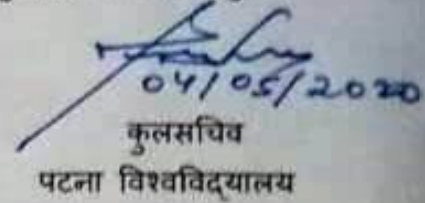 04/05/2020
कुलसचिव
पटना विश्वविद्यालय